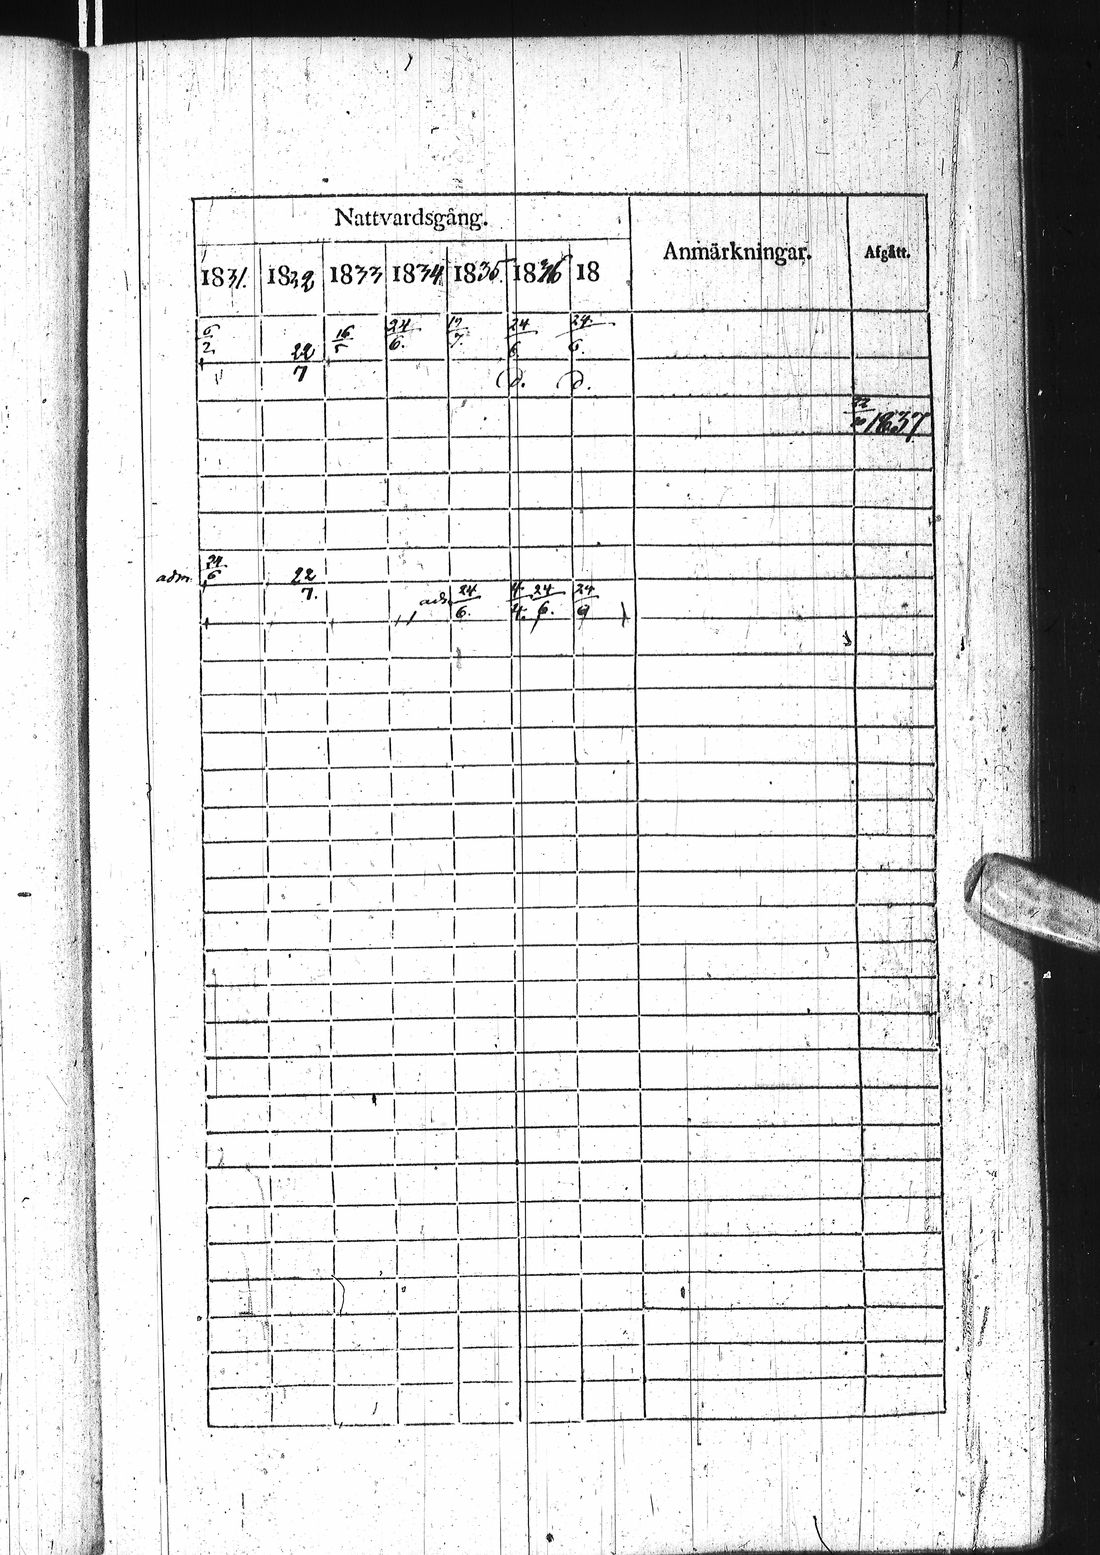 Nattvardsgång. Anmärkningar. Afgått.
1831. 1832 1833 1834 1835. 1836 18
6/2 22/7 16/5 24/6. 17/7 24/6 24/6.
d. d.
1837
adm. 24/6 22/7.
adm. 24/6. 4/4. 24/6. 24/9